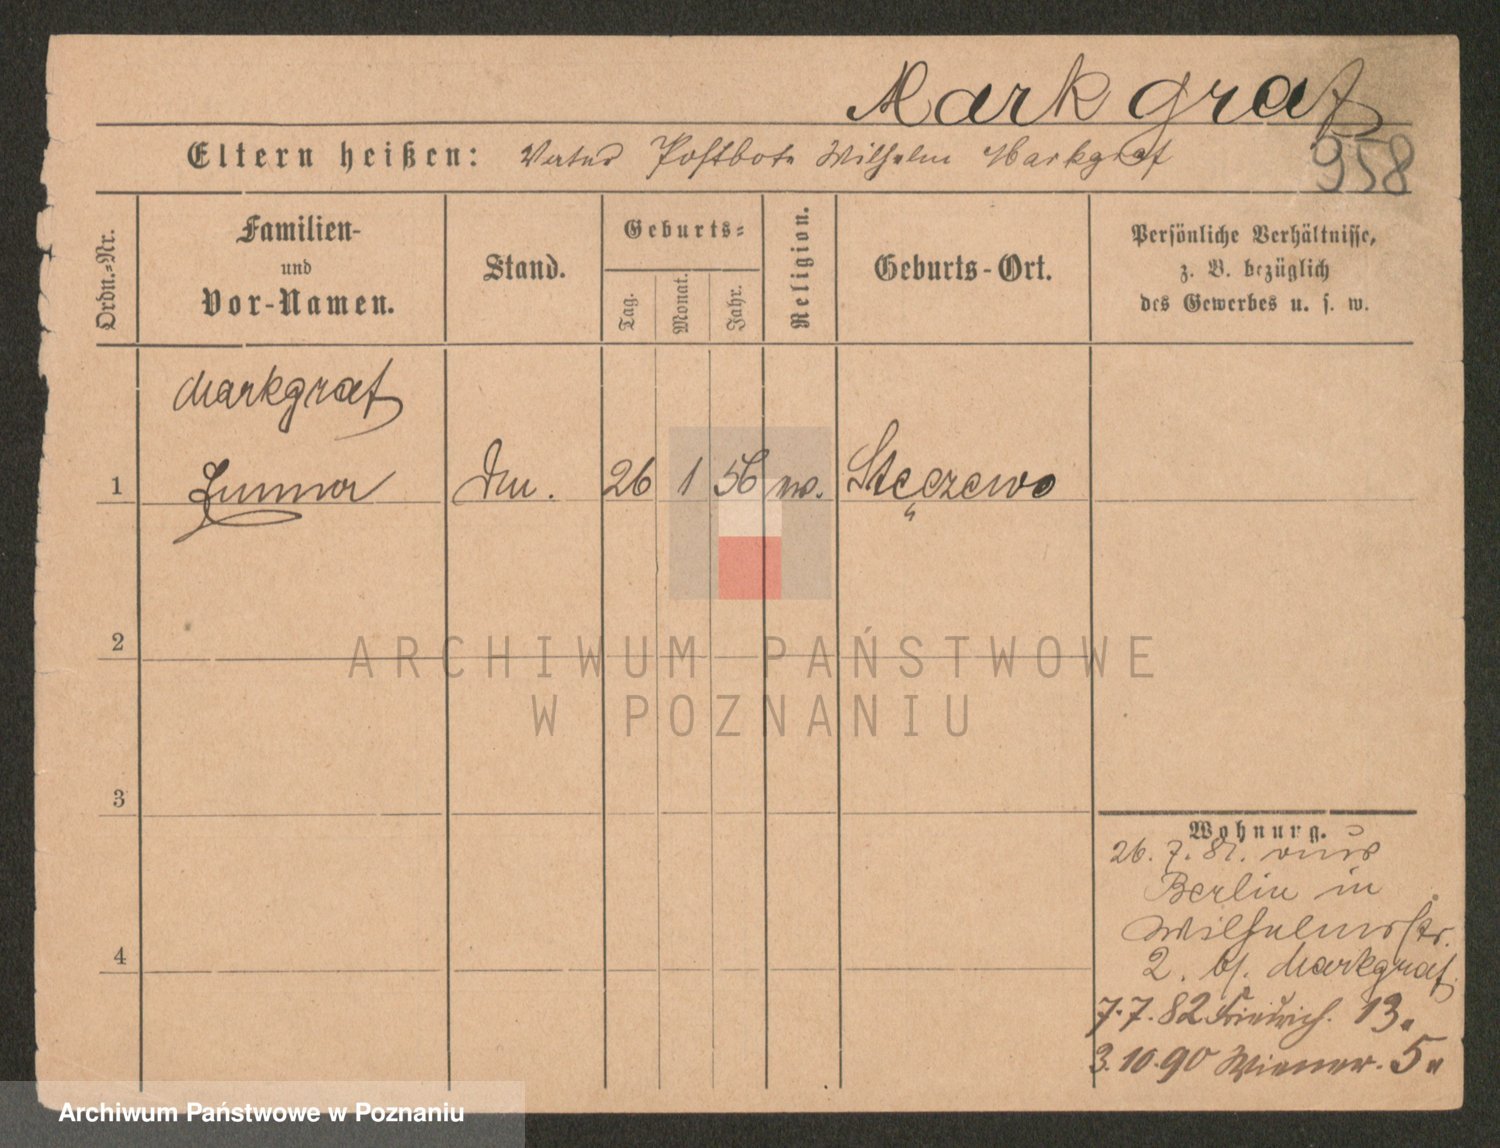 Markgraf
Eltern heißen: Vater Postbote Wilhelm Markgraf
958
Ordn.-Nr.
Familien-
und
Vor-Namen.
Stand.
Geburts-
Tag.
Monat.
Jahr.
Religion.
Geburts-Ort.
Persönliche Verhältnisse,
z. B. bezüglich
des Gewerbes u. s. w.
Markgraf
1 26 1 56 Stęczewo
2
3
4
Wohnung.
26. 7. 81. aus
Berlin in
Wilhelmsstr.
2. b/. Markgraf.
7.7.82 Friedrich. 13.
3.10.90 Wiener. 5
ARCHIWUM PAŃSTWOWE
W POZNANIU
Archiwum Państwowe w Poznaniu